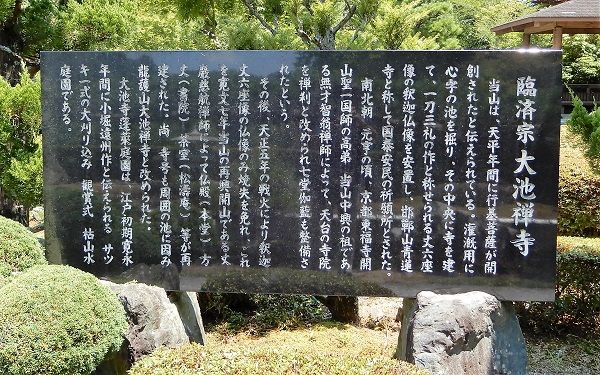 臨済宗大池禅寺
当山は、天平年間に行基菩薩が開
創されたと伝えられている。灌漑用に
心字の池を掘り、その中央に寺を建
て、一刀三礼の作と称せられる丈六座
像の釈迦仏像を安置し、邯鄲山青蓮
寺と称して国泰安民の祈願所とされた。
南北朝、元亨の頃、京都東福寺開
山聖一国師の高弟、当山中興の祖であ
る無才智翁禅師によって、天台の寺院
を禅刹と改められ七堂伽藍も整備さ
れたという。
その後、天正五年の戦火により釈迦
丈六座像の仏像のみ焼失を免れ、これ
を寛文七年当山の再興開山である丈
巌慈航禅師によって仏殿(本堂)方
丈(書院)茶室(松濤庵)等が再
建された。尚、寺号も周囲の池に因み
龍護山大池禅寺と改められた。
大池寺蓬莱庭園は、江戸初期寛永
年間に小堀遠州作と伝えられる サツ
キ一式の大刈り込み 観賞式 枯山水
庭園である。